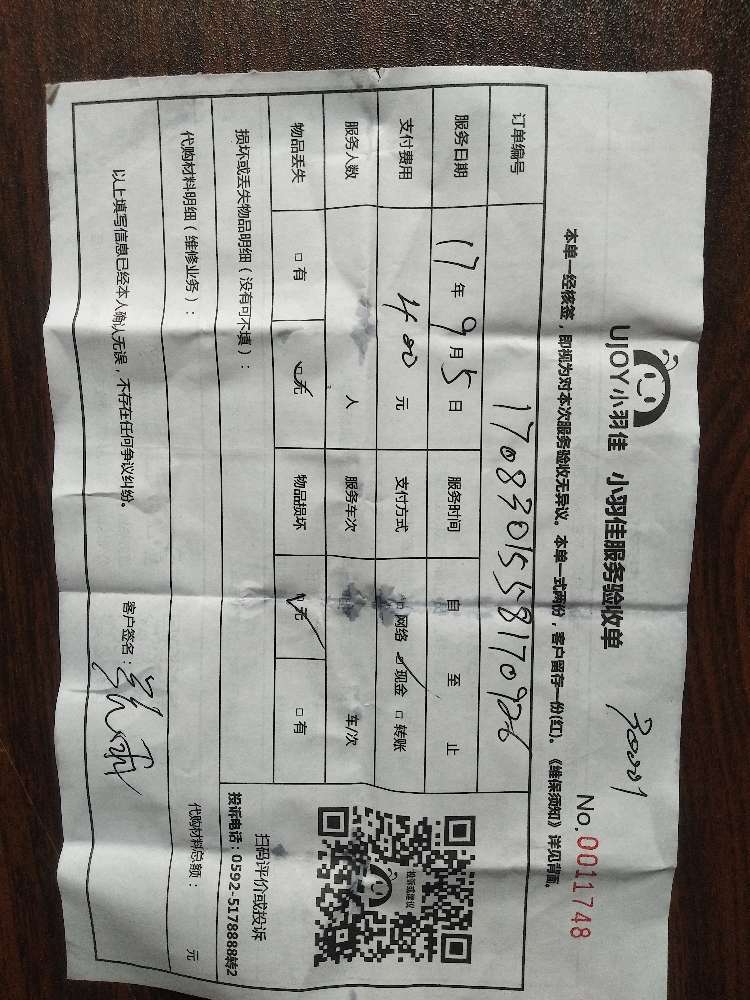 30001
UJOY小羽佳 小羽佳服务验收单
No.0011748
本单一经核签，即视为对本次服务验收无异议。本单一式两份，客户留存一份(红)。《维保须知》详见背面。
订单编号 1708301558170926
服务日期 17年9月5日 服务时间 自 至 止
支付费用 400元 支付方式 □网络 ☑现金 □转账
服务人数 人 服务车次 车/次
物品丢失 □有 ☑无 物品损坏 ☑无 □有
投诉或建议
扫码评价或投诉
投诉电话：0592-5178888转2
损坏或丢失物品明细（没有可不填）：
代购材料明细（维修业务）： 代购材料总额： 元
以上填写信息已经本人确认无误，不存在任何争议纠纷。
客户签名：